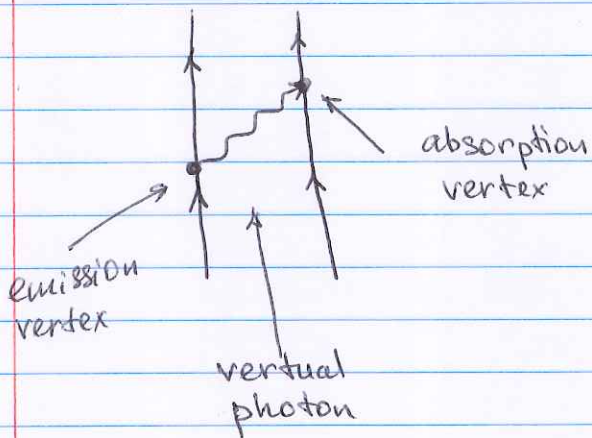 absorption
vertex
emission
vertex
vertual
photon